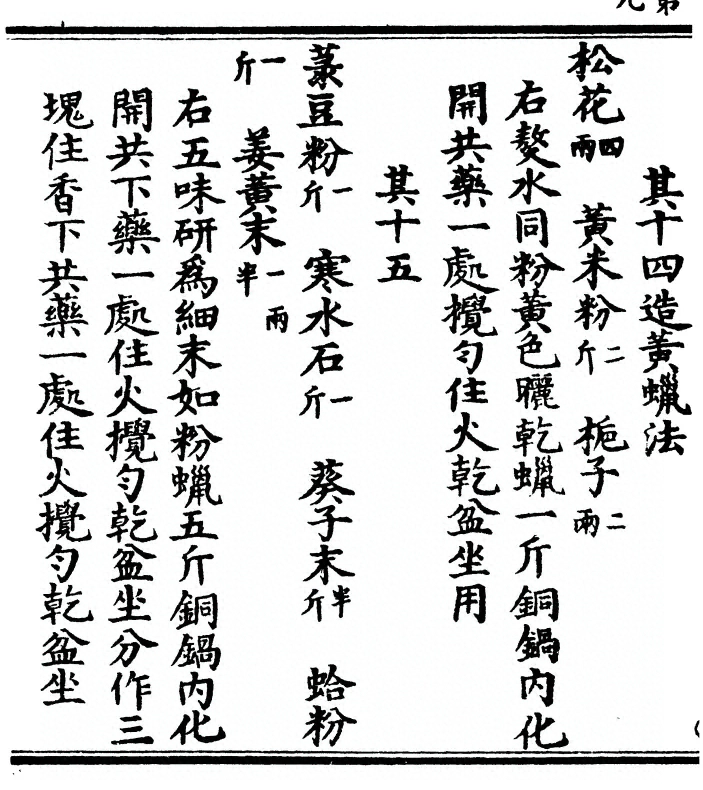 其十四造黃蠟法
松花四兩 黃米粉二斤 梔子二兩
右熬水同粉黃色曬乾蠟一斤銅鍋内化
開共藥一處攪勻住火乾盆坐用
其十五
菉豆粉一斤 寒水石一斤 葵子末半斤 蛤粉
一斤 姜黃末一兩半
右五味研爲細末如粉蠟五斤銅鍋内化
開共下藥一處住火攪勻乾盆坐分作三
塊住香下共藥一處住火攪勻乾盆坐